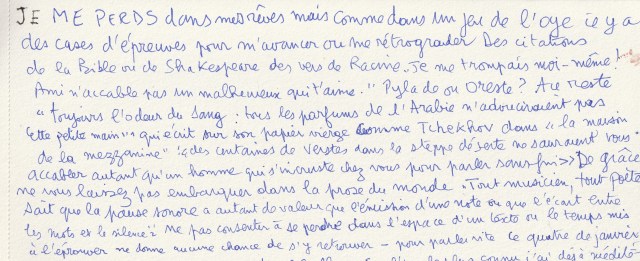 JE ME PERDS dans mes rêves mais comme dans un jeu de l'oye il y a
des cases d'épreuves pour m'avancer ou me rétrograder Des citations
de la Bible ou de Shakespeare des vers de Racine. Je me trompais moi-même !
Ami n'accable pas un malheureux qui t'aime." Pylade ou Oreste ? Au reste
"toujours l'odeur du sang : tous les parfums de l'Arabie n'adouciraient pas
cette petite main" qui écrit sur son papier vierge comme Tchekhov dans "la maison
de la mezzanine" "des centaines de verstes dans la steppe déserte ne sauraient vous
accabler autant qu'un homme qui s'incruste chez vous pour parler sans fin>> De grâce
ne vous laissez pas embarquer dans la prose du monde. Tout musicien, tout poète
sait que la pause sonore a autant de valeur que l'émission d'une note ou que l'écart entre
les mots et le silence ne pas consentir à se perdre dans l'espace d'un texto ou le temps mis
à l'éprouver ne donne aucune chance de s'y retrouver - pour parler vite ce quatre de janvier
j'ai déjà médité